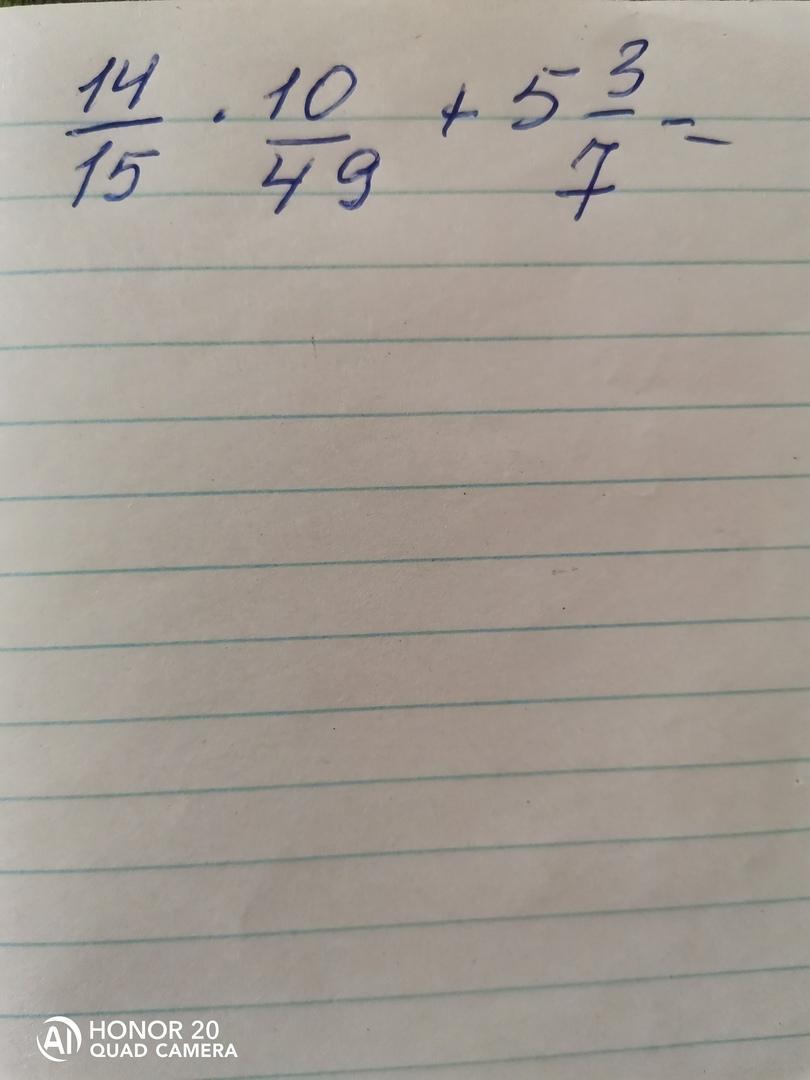 14/15 · 10/49 + 5 3/7 =
HONOR 20
QUAD CAMERA